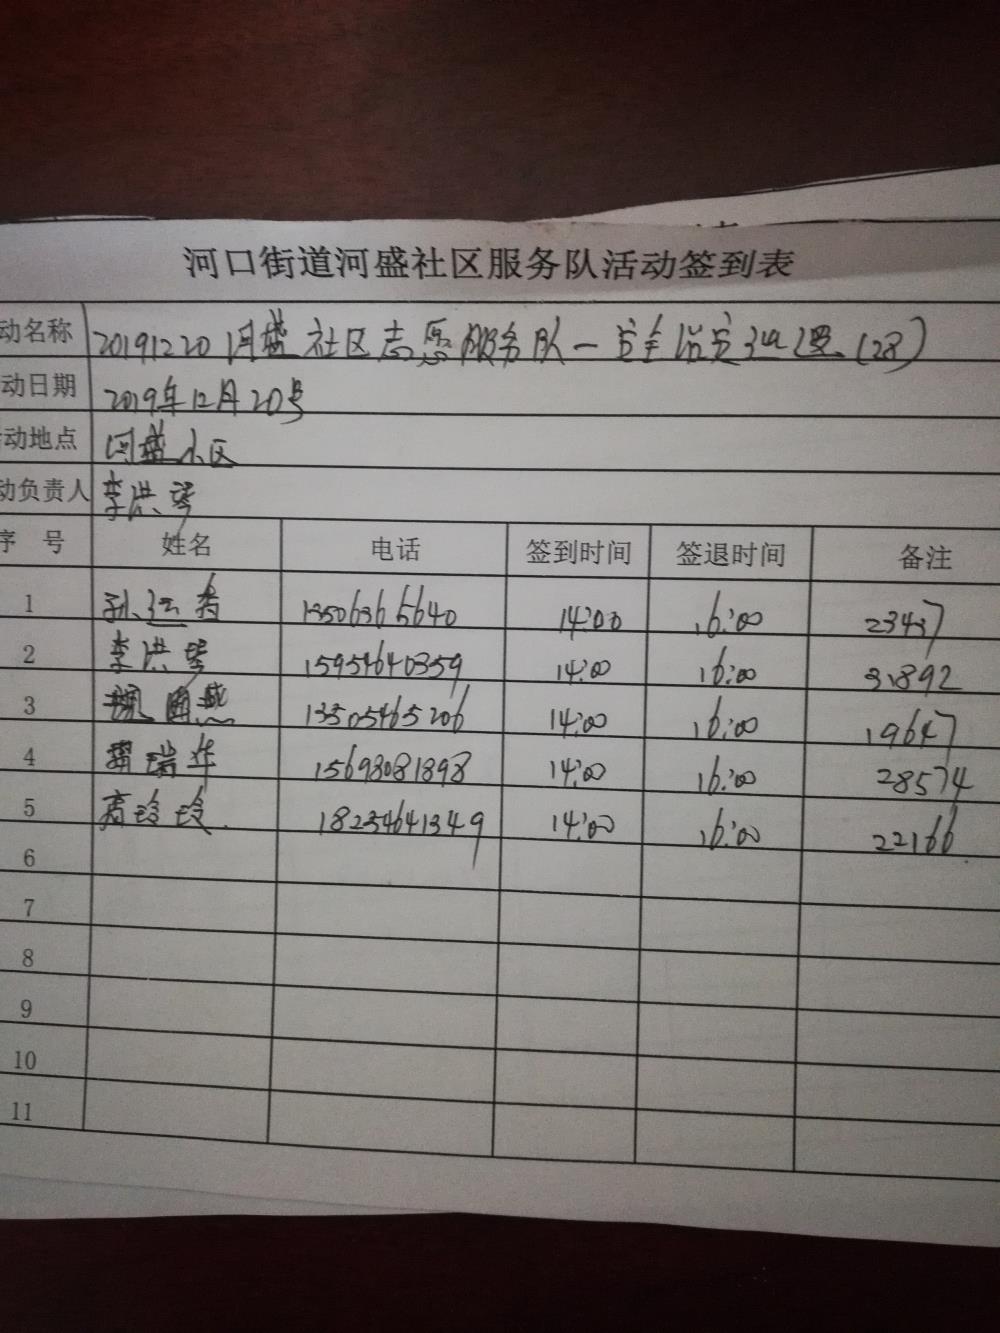 河口街道河盛社区服务队活动签到表
动名称 20191220河盛社区志愿服务队一安全治安巡逻(28)
动日期 2019年12月20号
动地点 河盛小区
动负责人 李洪琴
序 号 姓名 电话 签到时间 签退时间 备注
1 孙 13506365640 14:00 16:00 23437
2 李洪琴 15954640359 14:00 16:00 31892
3 13505465206 14:00 16:00 19647
4 瑞华 15698081898 14:00 16:00 28574
5 高玲玲 18234641349 14:00 16:00 22166
6
7
8
9
10
11